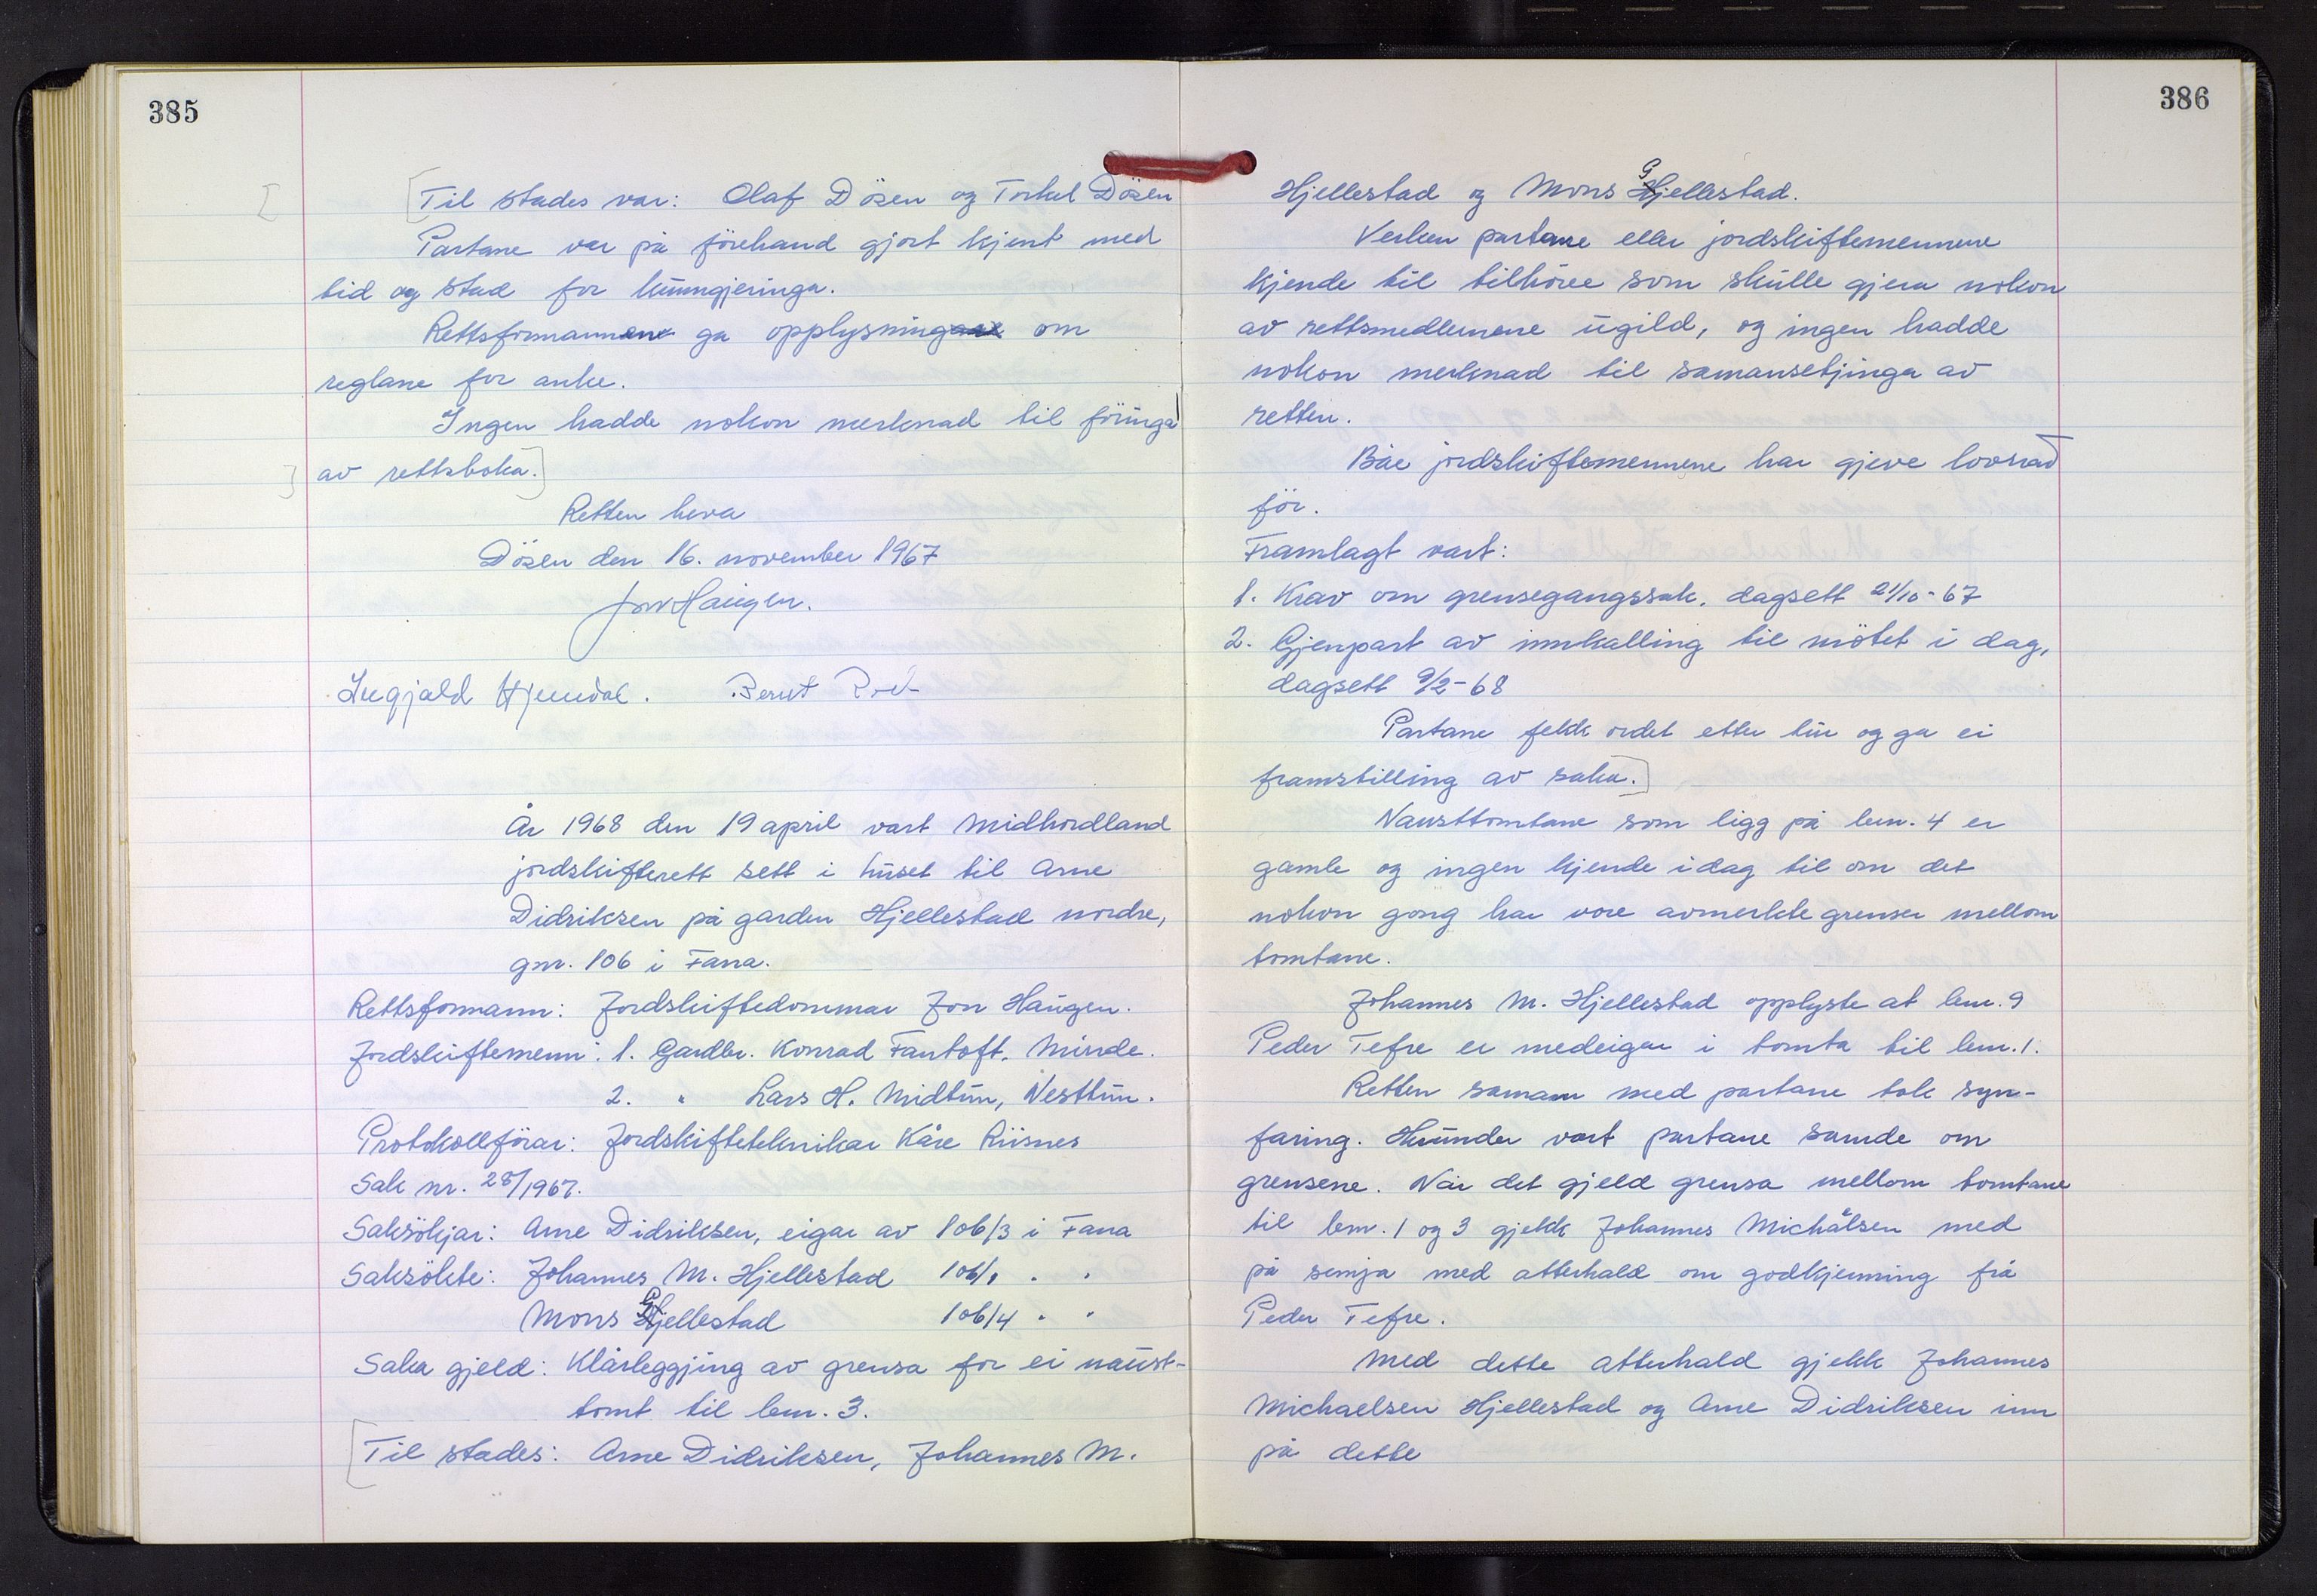 385
[Til stades var: Olaf Dösen og Torkel Dösen
Partane var på förehand gjort kjent med
tid og stad for kunngjeringa.
Rettsformannen ga opplysning om
reglane for anke.
Ingen hadde nokon merknad til föringa
av rettsboka.]
Retten heva
Dösen den 16. november 1967
Jon Haugen.
Ingjald Hjemdal. Bernt
År 1968 den 19 april vart Midhordland
jordskifterett sett i huset til Arne
Didriksen på garden Hjellestad nordre,
gnr. 106 i Fana.
Rettsformann: Jordskiftedommar Jon Haugen.
Jordskiftemenn: 1. Gardbr. Konrad Fantoft, Minde.
2. " Lars H. Midtun, Nesttun.
Protokollförar: Jordskifteteknikar Kåre Riisnes
Sak nr. 28/1967.
Saksökjar: Arne Didriksen, eigar av 106/3 i Fana
Saksökte: Johannes M. Hjellestad 106/1 " "
Mons Gjellestad 106/4 " "
Saka gjeld: Klårleggjing av grensa for ei naust-
tomt til bnr. 3.
[Til stades: Arne Didriksen, Johannes M.
386
Hjellestad og Mons Gjellestad.
Verken partane eller jordskiftemennene
kjende til tilhöve som skulle gjera nokon
av rettsmedlemene ugild, og ingen hadde
nokon merknad til samansetjinga av
retten.
Båe jordskiftemennene har gjeve lovnad
för.
Framlagt vart:
1. Krav om grensegangssak, dagsett 21/10-67
2. Gjenpart av innkalling til mötet i dag,
dagsett 9/2-68
Partane fekk ordet etter tur og ga ei
framstilling av saka.]
Nausttomtane som ligg på bnr. 4 er
gamle og ingen kjende idag til om det
nokon gong har vore avmerkte grenser mellom
tomtane.
Johannes M. Hjellestad opplyste at bnr. 9
Peder Tefre er medeigar i tomta til bnr. 1.
Retten saman med partane tok syn-
faring. Herunder vart partane samde om
grensene. Når det gjeld grensa mellom tomtane
til bnr. 1 og 3 gjekk Johannes Michålsen med
på semja med atterhald om godkjenning frå
Peder Tefre.
Med dette atterhald gjekk Johannes
Michaelsen Hjellestad og Arne Didriksen inn
på dette